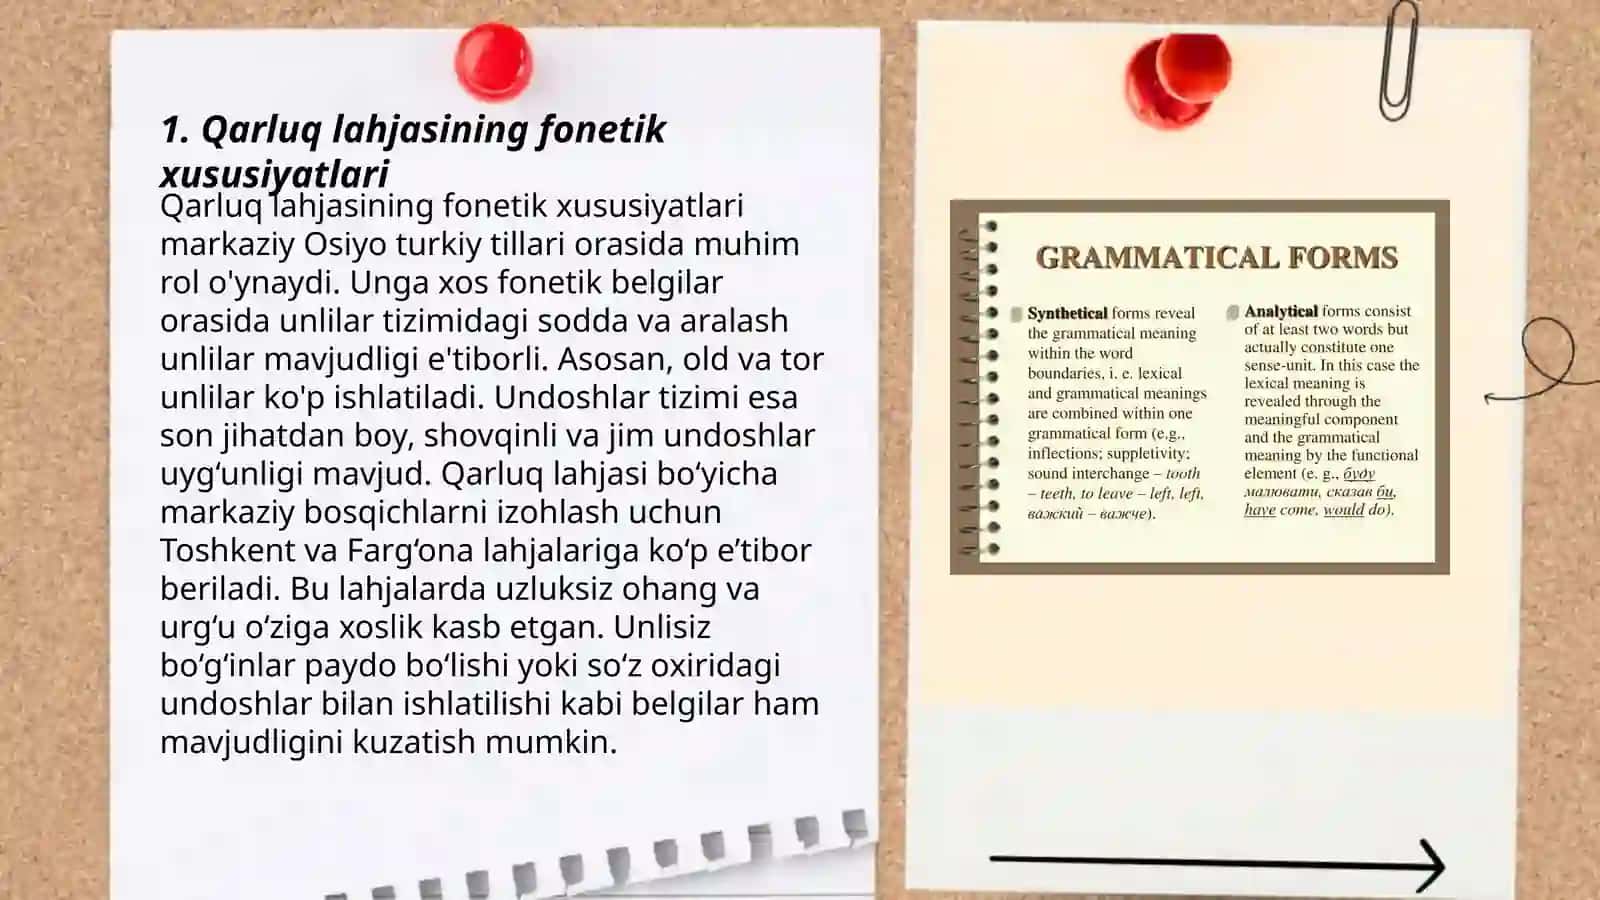 1. Qarluq lahjasining fonetik
xususiyatlari
Qarluq lahjasining fonetik xususiyatlari
markaziy Osiyo turkiy tillari orasida muhim
rol o'ynaydi. Unga xos fonetik belgilar
orasida unlilar tizimidagi sodda va aralash
unlilar mavjudligi e'tiborli. Asosan, old va tor
unlilar ko'p ishlatiladi. Undoshlar tizimi esa
son jihatdan boy, shovqinli va jim undoshlar
uyg‘unligi mavjud. Qarluq lahjasi bo‘yicha
markaziy bosqichlarni izohlash uchun
Toshkent va Farg‘ona lahjalariga ko‘p e’tibor
beriladi. Bu lahjalarda uzluksiz ohang va
urg‘u o‘ziga xoslik kasb etgan. Unlisiz
bo‘g‘inlar paydo bo‘lishi yoki so‘z oxiridagi
undoshlar bilan ishlatilishi kabi belgilar ham
mavjudligini kuzatish mumkin.
GRAMMATICAL FORMS
Synthetical forms reveal
the grammatical meaning
within the word
boundaries, i. e. lexical
and grammatical meanings
are combined within one
grammatical form (e.g.,
inflections; suppletivity;
sound interchange – tooth
– teeth, to leave – left, left,
важкий – важче).
Analytical forms consist
of at least two words but
actually constitute one
sense-unit. In this case the
lexical meaning is
revealed through the
meaningful component
and the grammatical
meaning by the functional
element (e. g., буду
малювати, сказав би,
have come, would do).